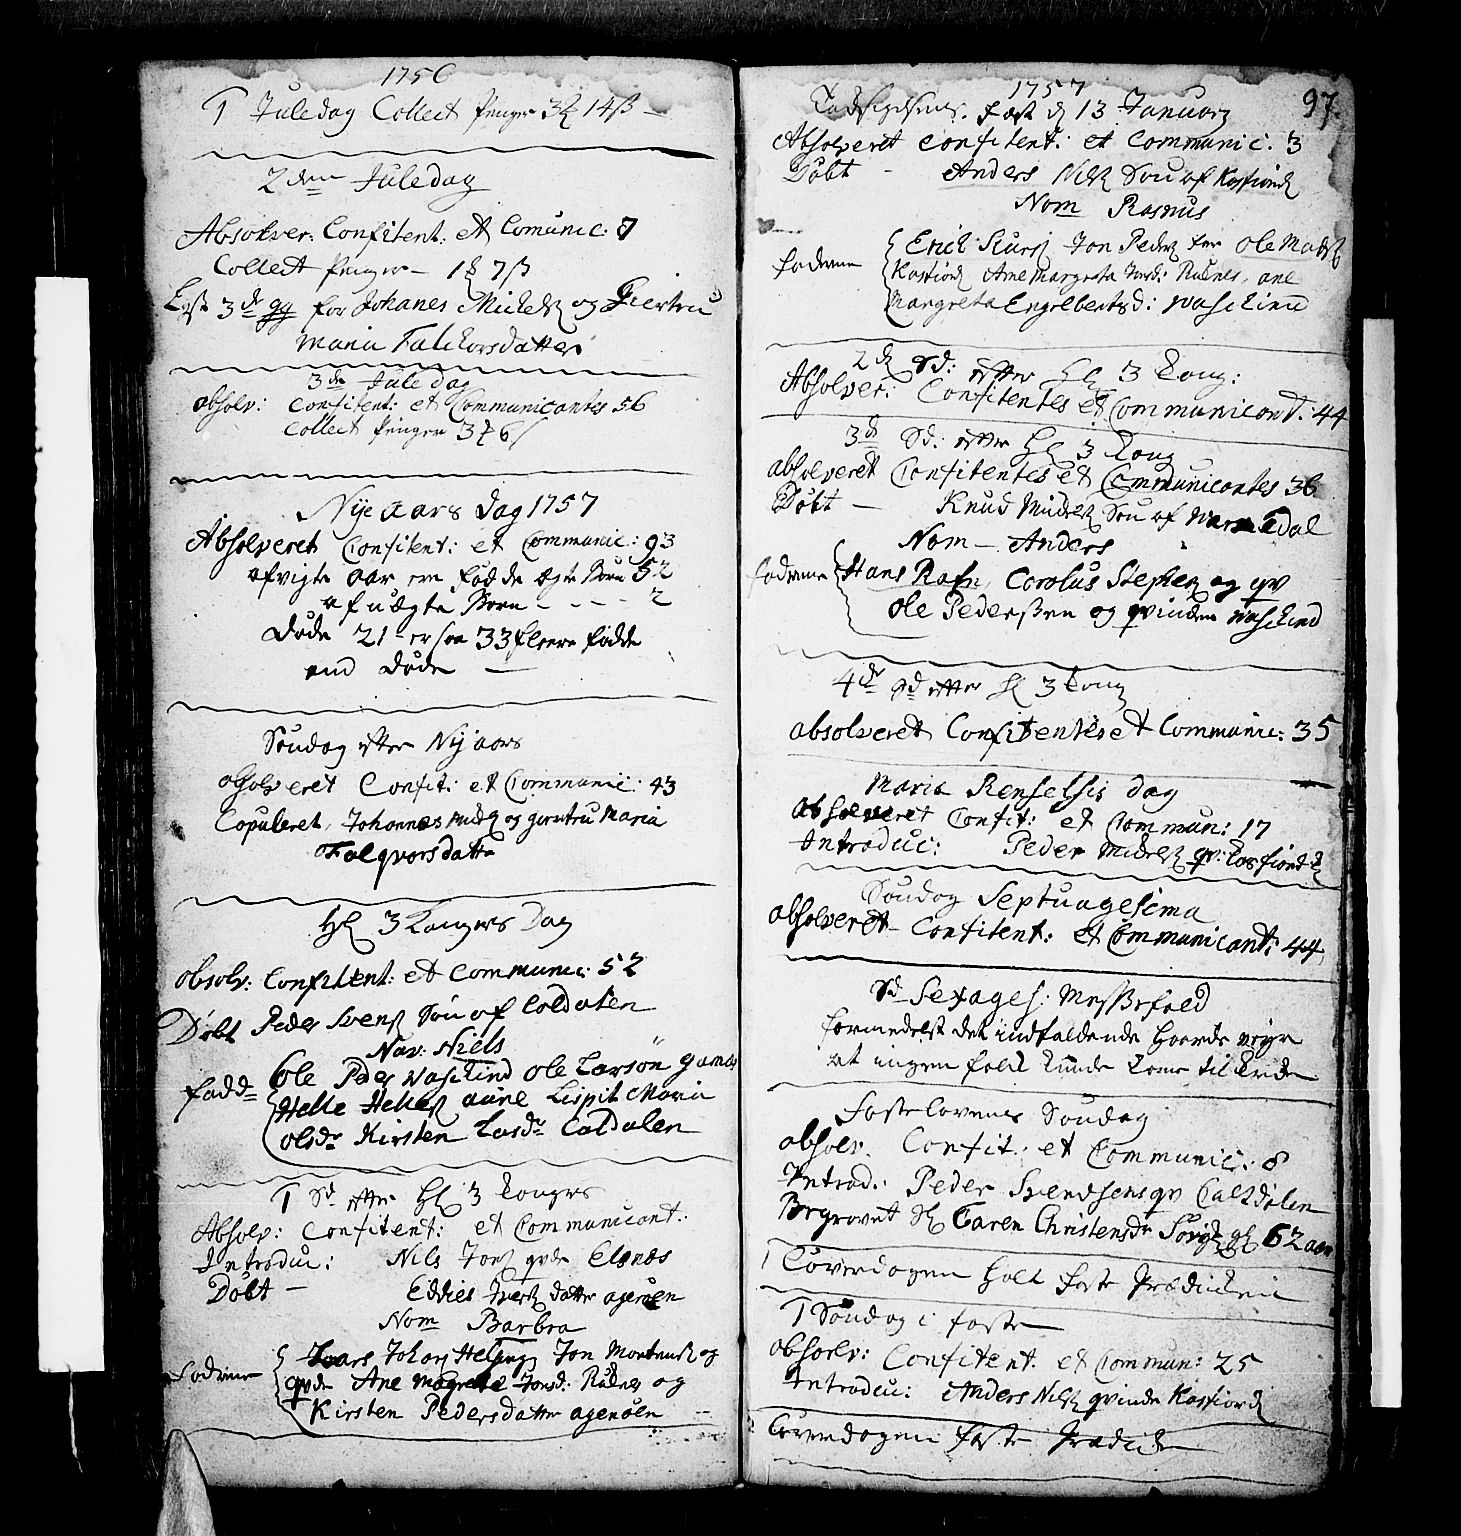 1756
1 Juledag Collect penger 3 14 ß
2den Juledag
Absolver: Confitent: et Comunic: 7
Collect penger – 1 7 ß
Lyst 3de gg for Johanes Michels og Giertru
Maria Falckorsdatter
3de Juledag
absolv: Confitent: et Communicantes 56
Collect penger 3 6
Nye aars dag 1757
Absolveret Confitent: et Communic: 93
afvigte aar ere fødde ægte Børn 52
af uægte Børn – – – – 2
døde 21 – er saa 33 fleere fødde
end døde –
Søndag efter Nyaars
absolveret Confit: et Communic: 43
Copuleret, Johannes og giertru Maria
Falqvorsdatter
Hl 3 Kongers Dag
absolv: Confitent: et Communic: 52
Døbt Peder Svens Søn af Caldalen
Nav: Niels
fadd Ole Peders Waschind Ole Larsøn
Helle Helles anne Lispit Maria
olsdr Kirsten Larsdr Caldalen
1 Sd efter Hl 3 Kongers
Absolv: Confitent: et Communicant:
Introduc: Nils Jons qvde Elsnæs
Døbt – Eddies Ivers datter agerøen
Nom Barbra
fadrene Johan Jon Mortens og
qvde Ane Magrete Jonsd: Rødnes og
Kirsten Pedersdatter agerøen
1757
97.
fæst d 13 Januarii
Absolveret confitent: et Communic: 3
Døbt – Anders Nils Søn af Kosfiord
Nom Rasmus
fadrene Erich Jon Peders Ole Mads
Kosfiord Ane Margreta Jonsd: Rødnes, ane
Margreta Engelbertsd: Waschind
2d Sd: efter Hl 3 Kong:
Absolver: Confitentes et Communicant: 44
3d Sd: efter Hl 3 Kong
absolveret Confitentes et Communicantes 36
Døbt – Knud Søn af
Nom – Anders
fadrene Hans Rafn, Carolus og qv
Ole Pederssen og qvinden Waschind
4de Sd efter Hl 3 Kong
absolveret Confitentes et Communic: 35
Maria Renselsis dag
absolveret Confit: et Commun: 17
Introduc: Peder qv: Kosfiord
Søndag Septuagesima
absolveret Confitent: et Communicant: 44
Sd Sexages: Messefald
formedelst det indfaldende haarde veyr
at ingen folck kunde kome til Kirke
Fastelavens Søndag
absolv. Confit: et Communic: 8
Introd: Peder Svendsens qv Caldalen
Begravet Sl Caren Christensdr gl 62 aar
1 Torsdagen holt faste Prædicken
1 Søndag i faste
absolv: Confitent: et Commun: 25
Introduc: Anders Nils qvinde Kosfiord
Torsdagen faste Prædicken